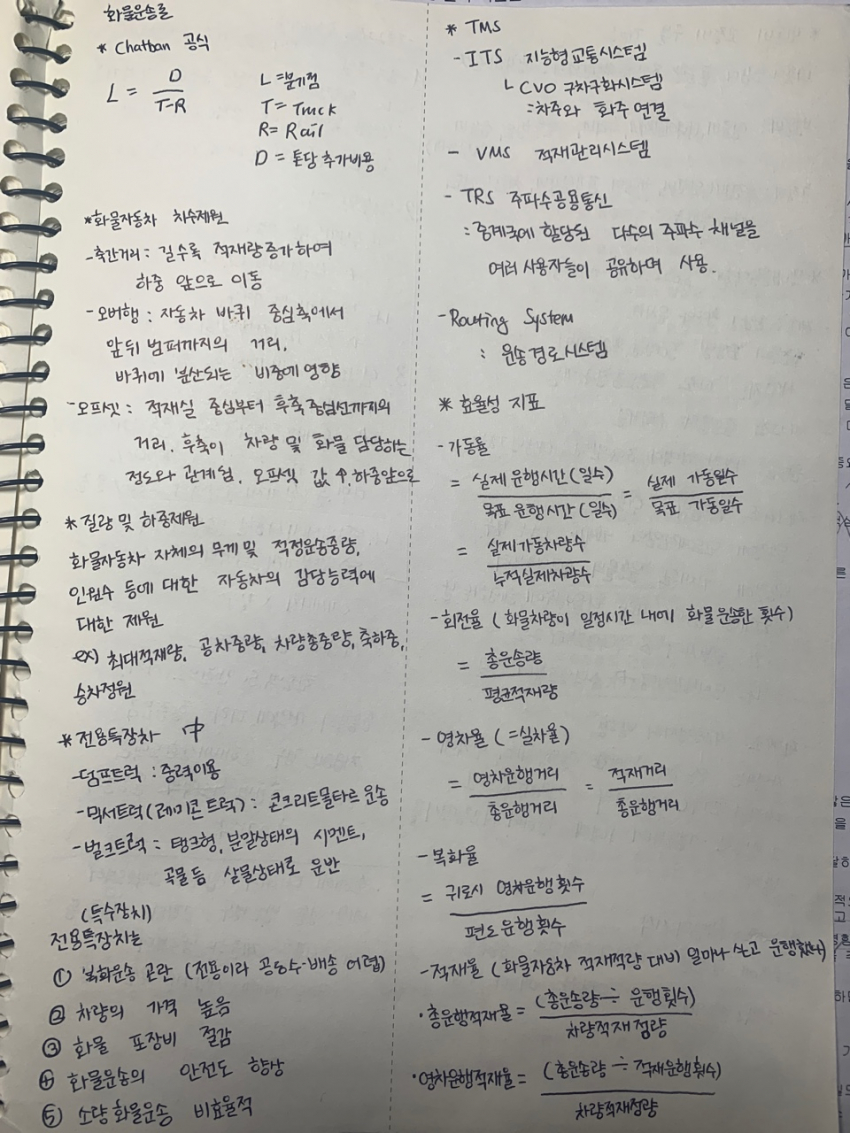 화물운송론
* Chatban 공식
L = D / T-R
L = 분기점
T = Truck
R = Rail
D = 톤당 추가비용
*화물자동차 치수제원
-축간거리 : 길수록 적재량증가하여
하중 앞으로 이동
-오버행 : 자동차 바퀴 중심축에서
앞뒤 범퍼까지의 거리.
바퀴에 분산되는 비중에 영향
-오프셋 : 적재실 중심부터 후축 중심선까지의
거리. 후축이 차량 및 화물 담당하는
정도와 관계됨. 오프셋 값 ↑, 하중앞으로
* 질량 및 하중제원
화물자동차 자체의 무게 및 적정운송중량,
인원수 등에 대한 자동차의 감당능력에
대한 제원
ex) 최대적재량, 공차중량, 차량총중량, 축하중,
승차정원
* 전용특장차 中
-덤프트럭 : 중력이용
-믹서트럭(레미콘 트럭) : 콘크리트몰타르 운송
-벌크트럭 : 탱크형, 분말상태의 시멘트,
곡물등 살물상태로 운반
(특수장치)
전용특장차는
① 복화운송 곤란 (전용이라 공동수·배송 어렵)
② 차량의 가격 높음
③ 화물 포장비 절감
④ 화물운송의 안전도 향상
⑤ 소량화물운송 비효율적
* TMS
- ITS 지능형교통시스템
ㄴ CVO 구차구화시스템
: 차주와 화주 연결
- VMS 적재관리시스템
- TRS 주파수공용통신
: 중계국에 할당된 다수의 주파수 채널을
여러 사용자들이 공유하며 사용.
- Routing System
: 운송경로시스템
* 효율성 지표
- 가동률
= 실제 운행시간(일수) / 목표 운행시간(일수) = 실제 가동일수 / 목표 가동일수
= 실제가동차량수 / 누적실제차량수
- 회전율 ( 화물차량이 일정시간 내에 화물운송한 횟수 )
= 총운송량 / 평균적재량
- 영차율 ( =실차율)
= 영차운행거리 / 총운행거리 = 적재거리 / 총운행거리
- 복화율
= 귀로시 영차운행횟수 / 편도운행횟수
- 적재율 ( 화물자동차 적재적량 대비 얼마나 싣고 운행했나)
· 총운행적재율 = (총운송량 ÷ 운행횟수) / 차량적재정량
· 영차운행적재율 = (총운송량 ÷ 적재운행횟수) / 차량적재정량